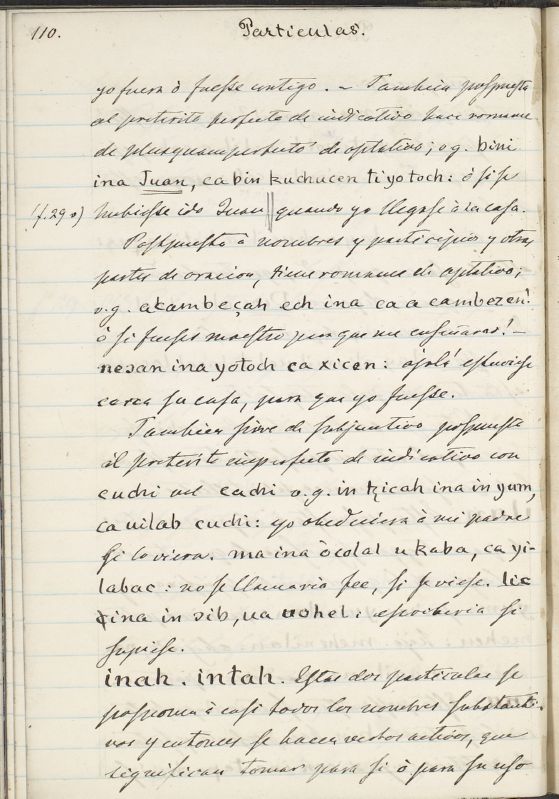 110. Particulas.
yo fuera ò fuesse contigo. – Tambien pospuesta
al preterito perfecto de indicativo hace romance
de plusquamperfecto de optativo; v.g. bini
ina Juan, ca bin kuchucen ti yotoch: ó si se
(f. 29 v) hubiesse ido Juan || quando yo llegasè à la casa.
Postpuesta à nombres y participios y otras
partes de oracion, tiene romance de optativo;
v.g. acambeçah ech ina ca a cambezen!
ó si fueses maestro para que me enseñaras! –
nesan ina yotoch ca xicen: ójalá estuviese
cerca su casa, para que yo fuesse.
Tambien sirve de subjuntivo pospuesta
al preterito imperfecto de indicativo con
cuchi vel cachi v.g. in tzicah ina in yum,
ca uilab cuchi: yo obedeciera à mi padre
si lo viera. ma ina òcolal u kaba, ca yi-
labac: no se llamaria fee, si se viese. lic
ina in dib, ua uohel: escriberia si
supiese.
inah. intah. Estas dos particulas se
posponen à casi todos los nombres substanti-
vos y entonces se hacen verbos activos, que
significan tomar para si ò para su uso